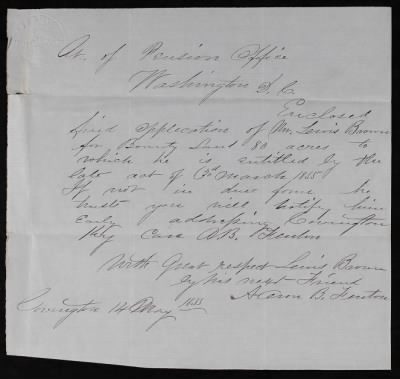 At. of Pension Office
Washington D. C.
Enclosed
find application of Mr. Lewis Brown
for Bounty Land 80 acres to
which he is entitled by the
late act of 3d March 1855
If not in due form he
trusts you will notify him
Early addressing Covington
Ky Care A. B. Fenton
With Great respect Lewis Brown
by his next Friend
Aaron B. Fenton
Covington 14 May 1855